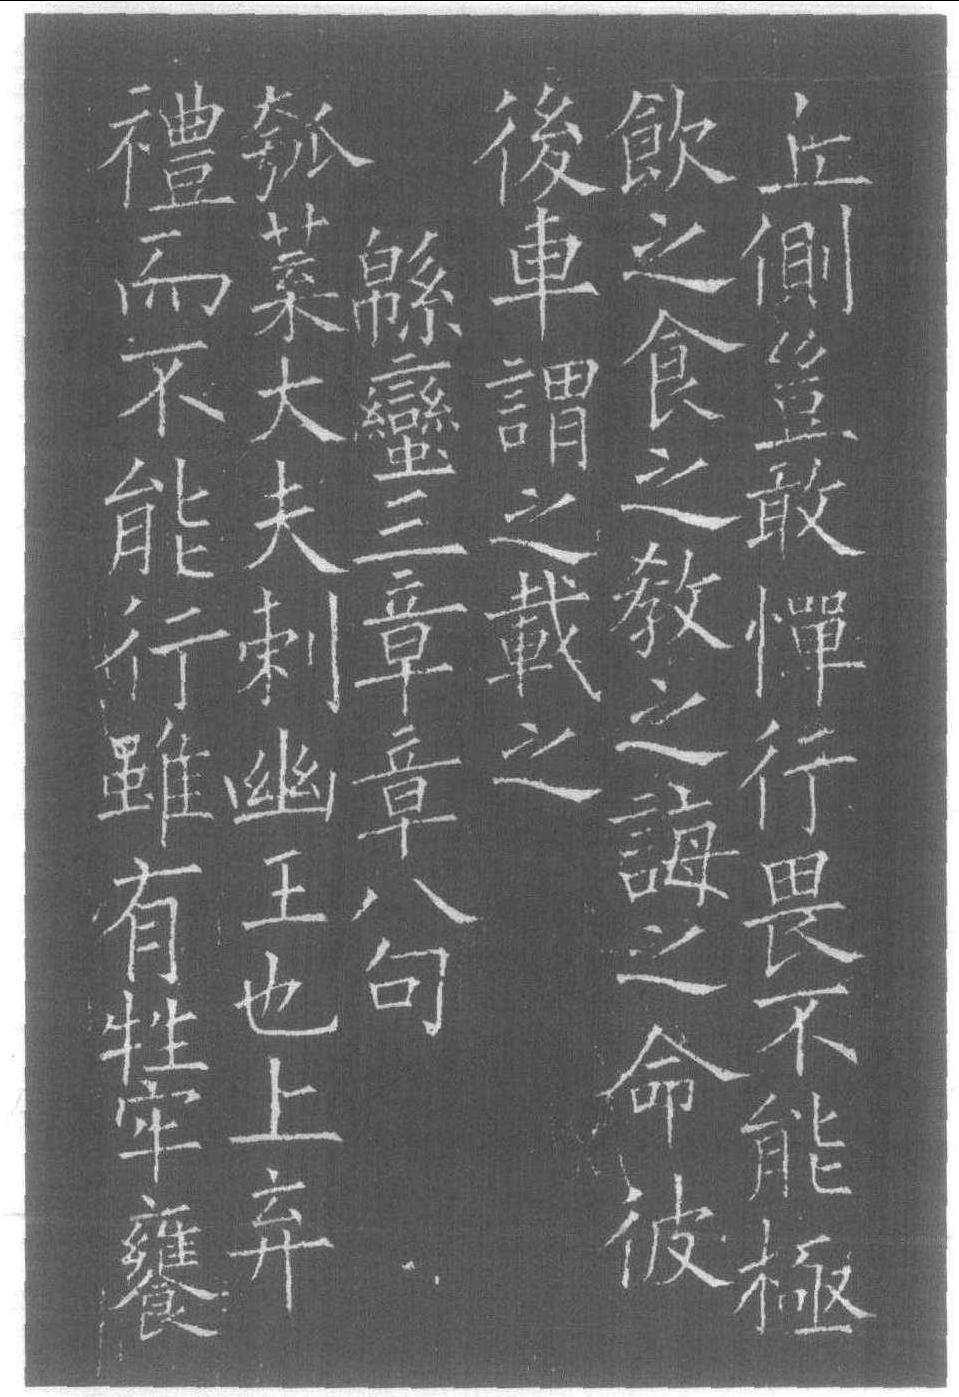 丘側豈敢憚行畏不能極
飲之食之教之誨之命彼
後車謂之載之
緜蠻三章章八句
瓠葉大夫刺幽王也上弃
禮而不能行雖有牲牢饔